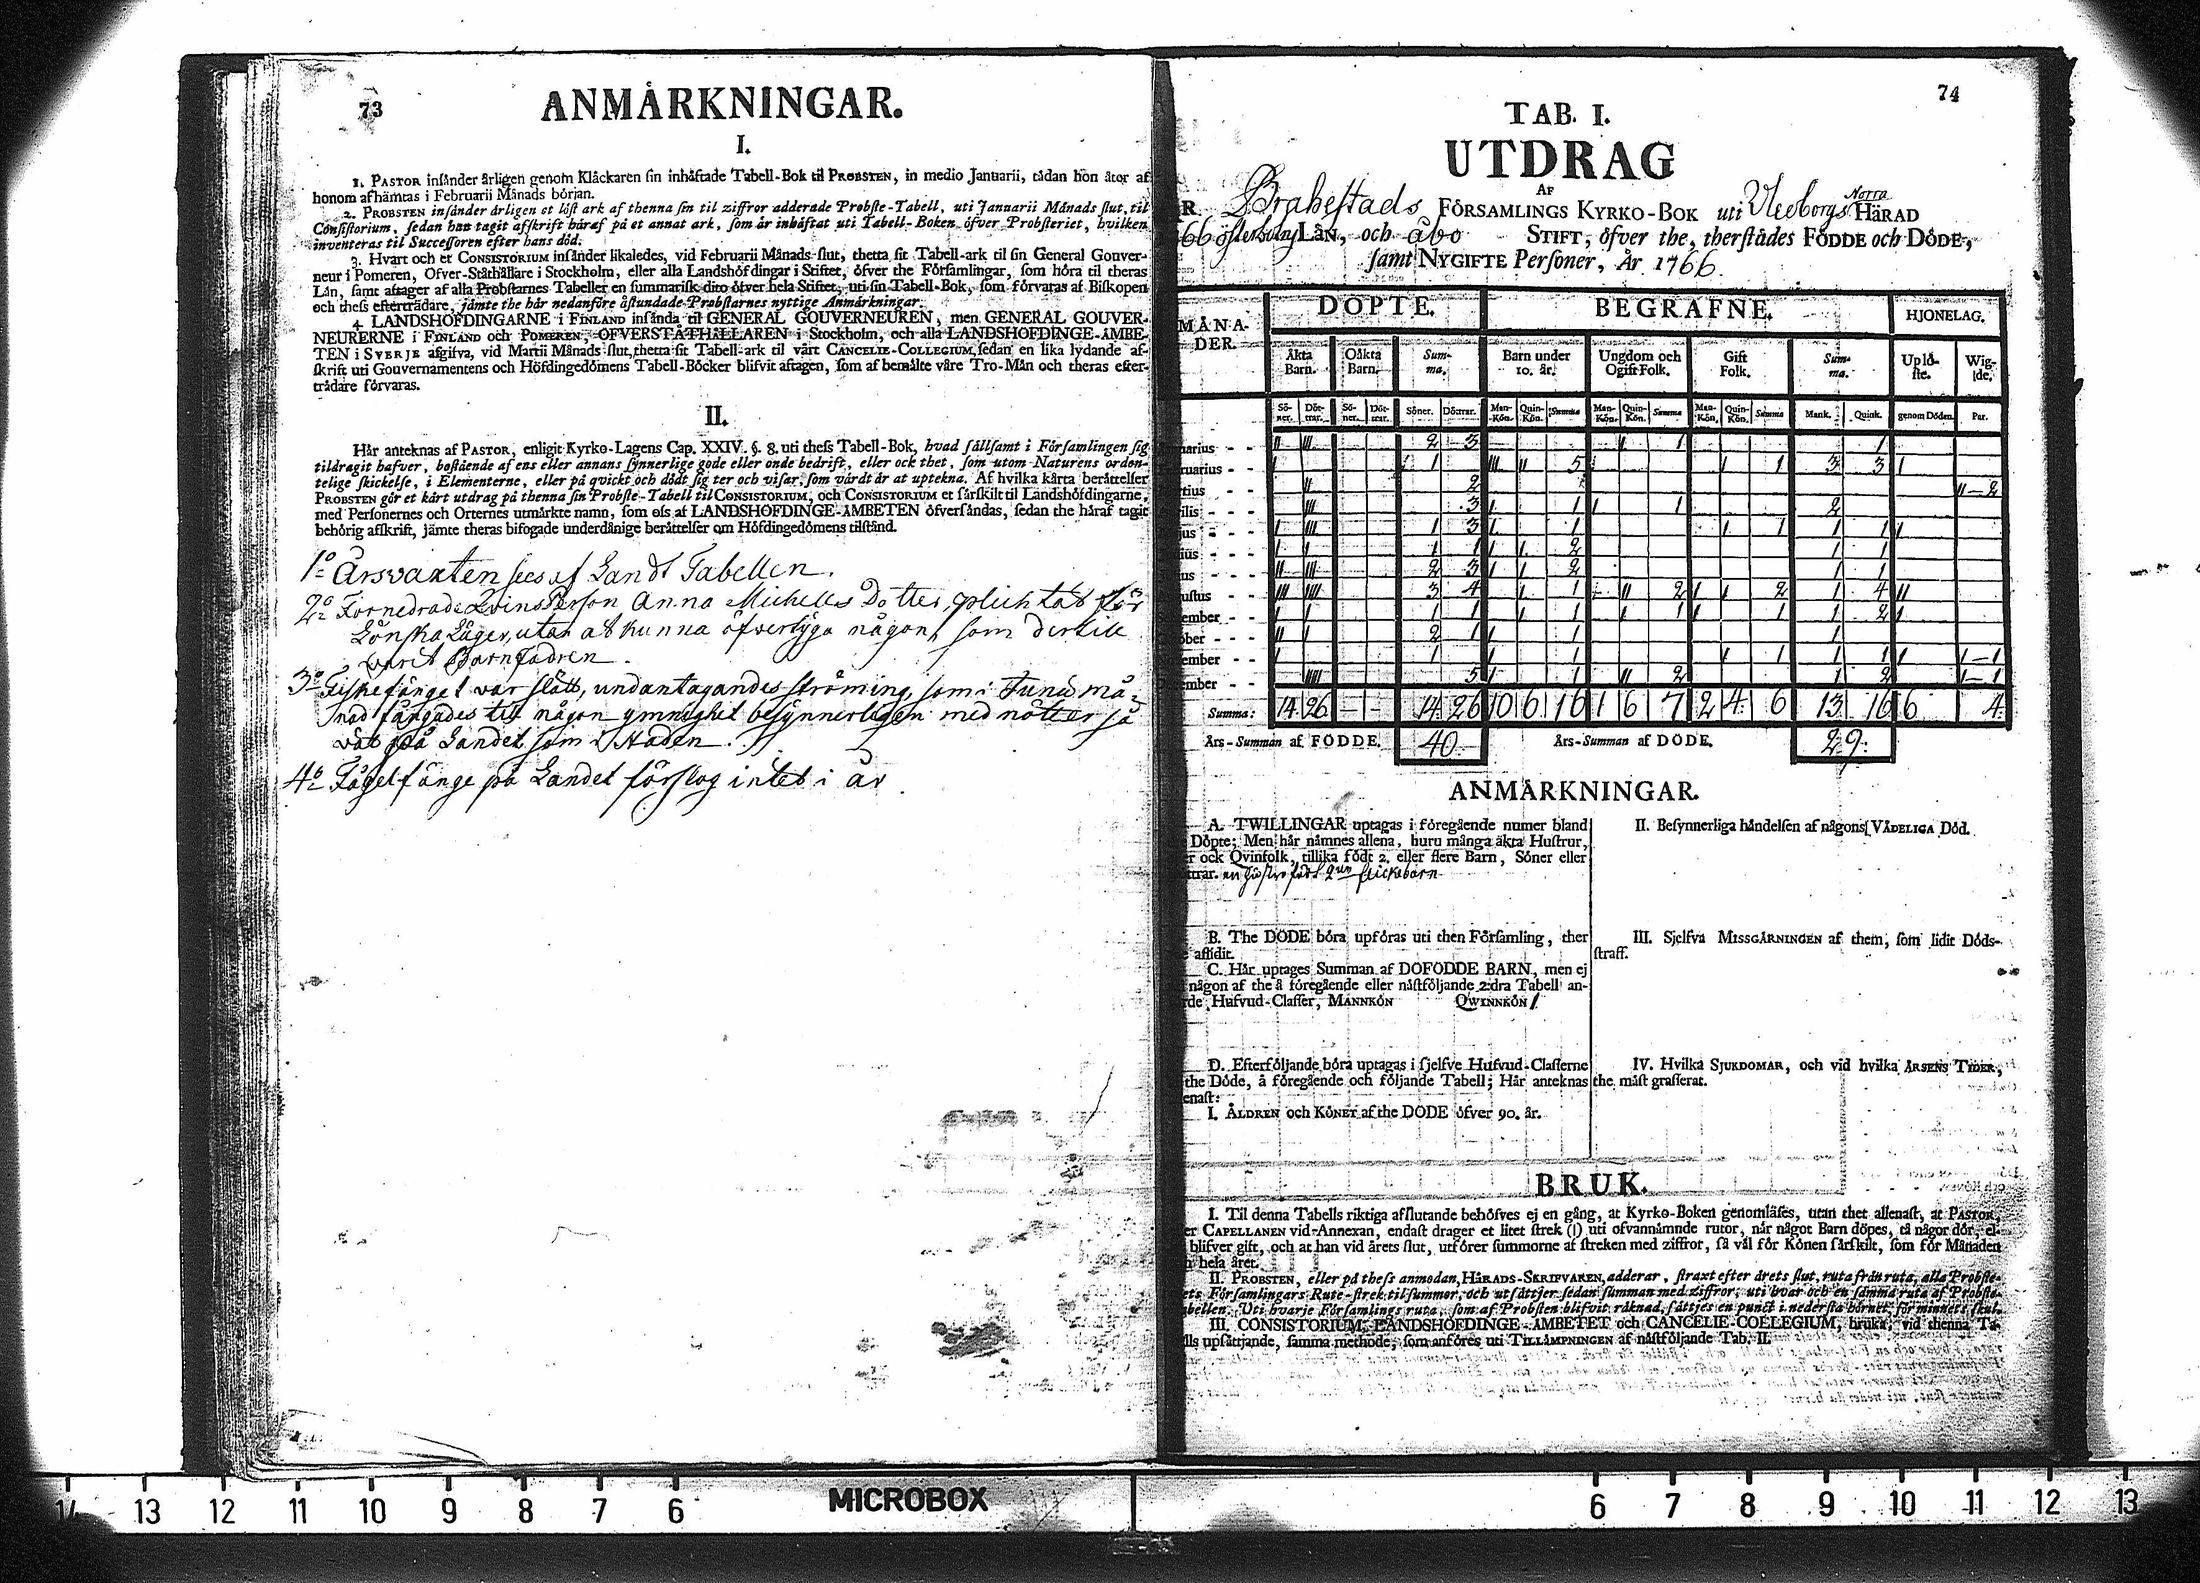 73
ANMÅRKNINGAR.
I.
1. PASTOR insånder årligen genom Klåckaren sin inhåftade Tabell-Bok til PROBSTEN, in medio Januarii, tådan hon åter af
honom afhämtas i Februarii Månads början.
2. PROBSTEN insånder årligen et löst ark af thenna sin til ziffror adderade Probste-Tabell, uti Jannarii Månads slut, til
Consistorium, sedan han tagit afskrift håraf på et annat ark, som år inhåftat uti Tabell-Boken öfver Probsteriet, hvilken
inventeras til Successoren efter hans död.
3. Hvart och et CONSISTORIUM insånder likaledes, vid Februarii Månads slut, thetta sit Tabell-ark til sin General Gouver-
neur i Pomeren, Ofver-Ståthållare i Stockholm, eller alla Landshöfdingar i Stiftet, öfver the Församlingar, som höra til theras
Lån, samt aftager af alla Probstarnes Tabeller en summarisk dito öfver hela Stiftet, uti sin Tabell-Bok, som förvaras af Biskopen
och thess eftertrådare, jämte the hår nedanföre åstundade Probstarnes nyttige Anmårkningar.
4. LANDSHÖFDINGARNE i FINLAND insånda til GENERAL GOUVERNEUREN, men GENERAL GOUVER-
NEURERNE i FINLAND och POMEREN, OFVERSTÅTHÅLLAREN i Stockholm, och alla LANDSHÖFDINGE-ÅMBE-
TEN i SVERJE afgifva, vid Martii Månads slut, thetta sit Tabell-ark til vårt CANCELIE-COLLEGIUM, sedan en lika lydande af-
skrift uti Gouvernamentens och Höfdingedömens Tabell-Böcker blifvit aftagen, som af bemålte våre Tro-Mån och theras efter-
trådare förvaras.
II.
Hår anteknas af PASTOR, enligit Kyrko-Lagens Cap. XXIV. §. 8. uti thess Tabell-Bok, hvad sållsamt i Församlingen sig
tildragit hafver, bestående af ens eller annans synnerlige gode eller onde bedrift, eller ock thet, som utom Naturens orden-
telige skickelse, i Elementerne, eller på qvickt och dödt sig ter och visar, som vårdt år at uptekna. Af hvilka kårta beråttelser
PROBSTEN gör et kårt utdrag på thenna sin Probste-Tabell til CONSISTORIUM, och CONSISTORIUM et sårskilt til Landshöfdingarne,
med Personernes och Orternes utmårkte namn, som oss af LANDSHÖFDINGE-ÅMBETEN öfversåndas, sedan the håraf tagit
behörig afskrift, jämte theras bifogade underdånige beråttelser om Höfdingedömens tilstånd.
1o Årsvaxten sees af Landt Tabellen.
2o Förnedrade Qvins Person Anna Michells Dotter, plichtat för
Lönska Läger, utan at kunna öfvertyga någon, som dertill
varit Barnfadren.
3o Fiskefänget var slätt, undantagandes ströming, som i Junii må-
nad fångades til någon ymnighet besynnerligen med nötter så
väl på Landet som i Staden.
4o Fågelfänge på Landet förslog intet i år.
74
TAB. I.
UTDRAG
AF
Norra
R. Brahestads FÖRSAMLINGS KYRKO-BOK uti Uleoborgs HÄRAD
66 österbotns LÅN, och Åbo STIFT, öfver the, therstådes FÖDDE och DÖDE,
samt NYGIFTE Personer, År 1766.
MÅNA-
DER. DÖPTE. BEGRAFNE. HJONELAG.
Åkta Barn. Oåkta Barn. Sum-ma. Barn under 10. år. Ungdom och Ogift Folk. Gift Folk. Sum-ma. Uplö-ste. Wig-de.
Sö-ner. Döt-trar. Sö-ner. Döt-trar. Söner. Döttrar. Man-Kön. Quin-Kön. Summa Man-Kön. Quin-Kön. Summa Man-Kön. Quin-Kön. Summa Mank. Quink. genom Döden. Par.
nuarius - - II III 2 3 I 1 1
ruarius - - I 1 III II 5 I 1 3 3 I
rtius - - II 2 II - 2
ilis - - III 3 I 1 I 1 2
jus - - I III 1 3 I 1 I 1 1 1 I
nius - - I I 1 1 I I 2 1 1
us - - II III 2 3 I I 2 1 1
ustus - - III IIII 3 4 I 1 II 2 I I 2 1 4 II
tember - - I I 1 1 I 1 I 1 I 1 1 2 I
ober - - II I 2 1 I 1 1
vember - - I 1 I 1 I 1 1 1 I I - 1
cember - - IIIII 5 I 1 II 2 1 2 I - 1
Summa: 14 26 - - 14 26 10 6 16 1 6 7 2 4 6 13 16 6 4
Års-Summan af FÖDDE. 40 Års-Summan af DÖDE. 29
ANMÅRKNINGAR.
A. TWILLINGAR uptagas i föregående numer bland
Döpte; Men hår nåmnes allena, huru många åkta Hustrur,
er ock Qvinfolk, tillika födt 2. eller flere Barn, Söner eller
ttrar. en hustro födt 2ne flickebarn
B. The DÖDE böra upföras uti then Församling, ther
e aflidit.
C. Hår uptages Summan af DÖFÖDDE BARN, men ej
någon af the å föregående eller nåstföljande 2:dra Tabell an-
rde Hufvud-Classer, MANNKÖN QWINNKÖN 1
D. Efterföljande böra uptagas i sjelfve Hufvud-Classerne
the Döde, å föregående och följande Tabell; Hår anteknas
enast:
I. ÅLDREN och KÖNET af the DÖDE öfver 90. år.
II. Besynnerliga håndelsen af någons VÅDELIGA Död.
III. Sjelfva MISSGÅRNINGEN af them, som lidit Döds-
straff.
IV. Hvilka SJUKDOMAR, och vid hvilka ÅRSENS TIDER,
the måst grasserat.
BRUK.
I. Til denna Tabells riktiga afslutande behöfves ej en gång, at Kyrko-Boken genomläses, utan thet allenast, at PASTOR,
er CAPELLANEN vid Annexan, endast drager et litet strek (I) uti ofvannåmnde rutor, når något Barn döpes, tå någor dör, el-
blifver gift, och at han vid årets slut, utförer summorne af streken med ziffror, så vål för Könen sårskilt, som för Månaden
h hela året.
II. PROBSTEN, eller på thess anmodan, HÄRADS-SKRIFVAREN, adderar, straxt efter årets slut, ruta från ruta, alla Probste-
ets Församlingars Rute-strek til summor, och utsåttjer sedan summan med ziffror, uti hvar och en samma ruta af Probste-
abellen. Uti hvarje Församlings ruta, som af Probsten blifvit råknad, såttjes en punct i nedersta hörnet, för minnets skul.
III. CONSISTORIUM, LANDSHÖFDINGE-ÅMBETET och CANCELIE-COLLEGIUM, bruka, vid thenna Ta-
lls upsåttjande, samma methode, som anföres uti TILLÄMPNINGEN af nåstföljande Tab. II.
14 13 12 11 10 9 8 7 6 MICROBOX 6 7 8 9 10 11 12 13